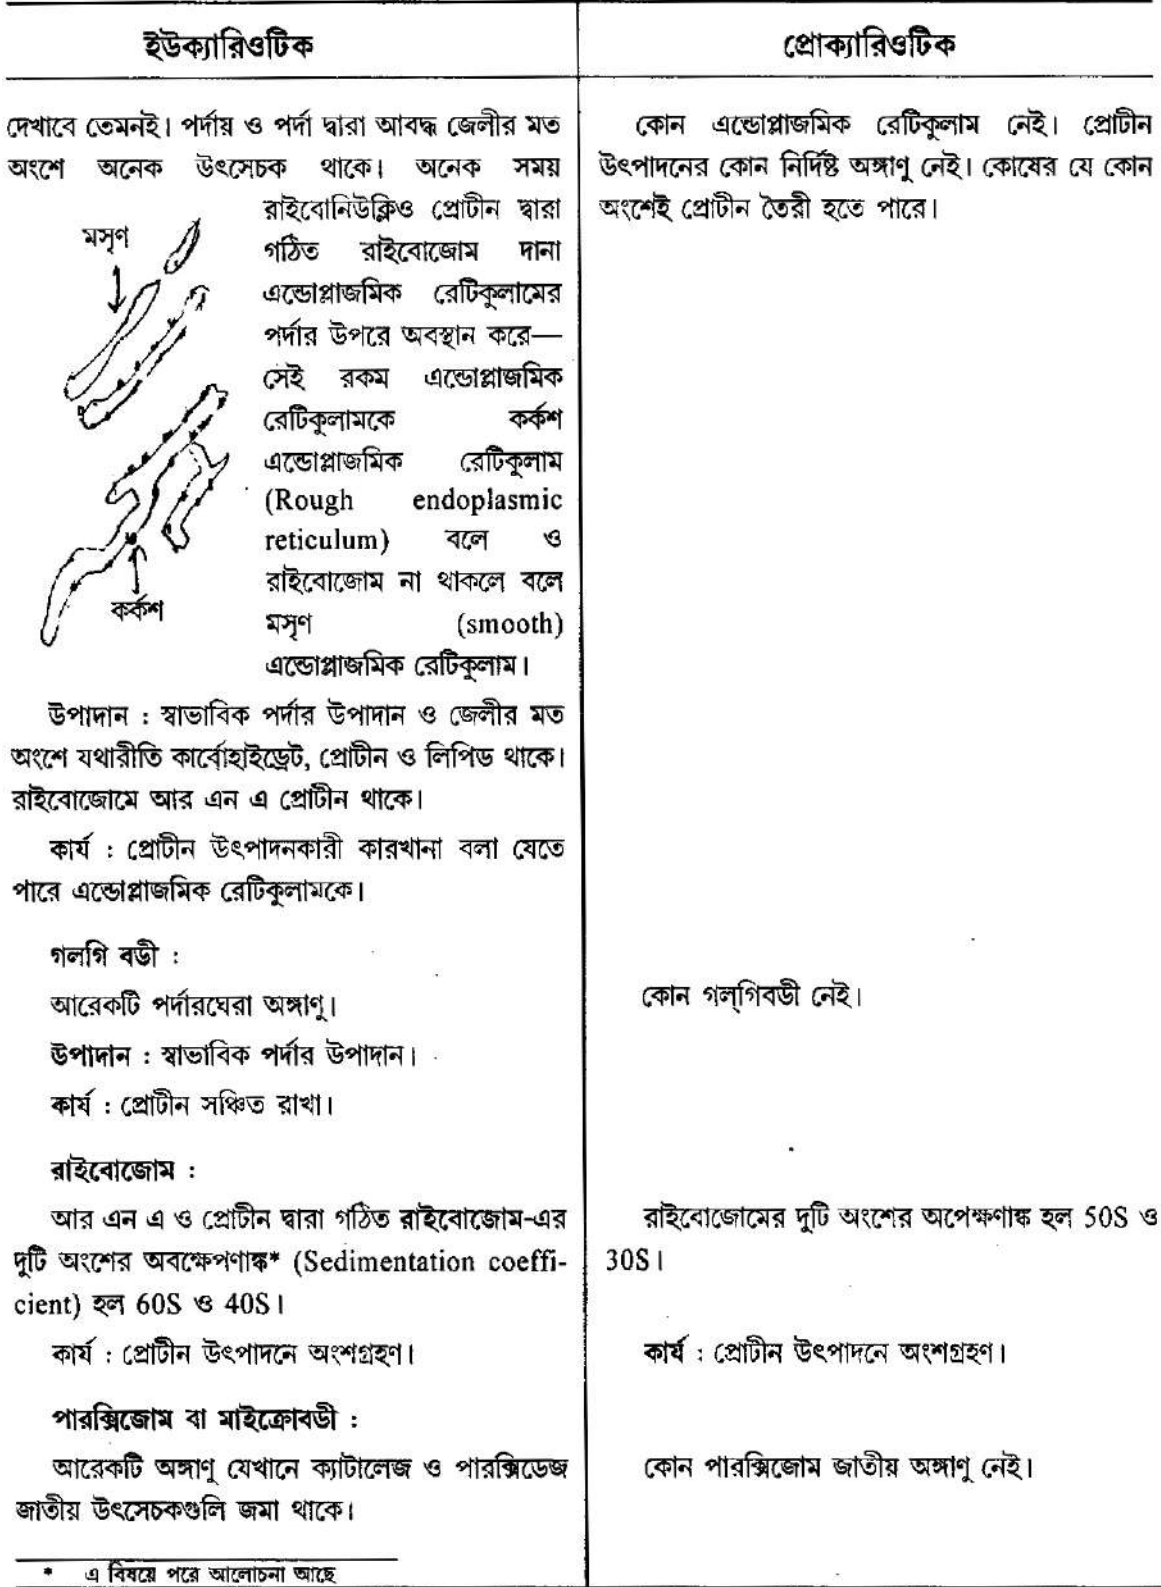 ইউক্যারিওটিক
প্রোক্যারিওটিক
দেখাবে তেমনই। পর্দায় ও পর্দা দ্বারা আবদ্ধ জেলীর মত
অংশে অনেক উৎসেচক থাকে। অনেক সময়
রাইবোনিউক্লিও প্রোটীন দ্বারা
গঠিত রাইবোজোম দানা
এন্ডোপ্লাজমিক রেটিকুলামের
পর্দার উপরে অবস্থান করে—
সেই রকম এন্ডোপ্লাজমিক
রেটিকুলামকে কর্কশ
এন্ডোপ্লাজমিক রেটিকুলাম
(Rough endoplasmic
reticulum) বলে ও
রাইবোজোম না থাকলে বলে
মসৃণ (smooth)
এন্ডোপ্লাজমিক রেটিকুলাম।
মসৃণ
কর্কশ
উপাদান : স্বাভাবিক পর্দার উপাদান ও জেলীর মত
অংশে যথারীতি কার্বোহাইড্রেট, প্রোটীন ও লিপিড থাকে।
রাইবোজোমে আর এন এ প্রোটীন থাকে।
কার্য : প্রোটীন উৎপাদনকারী কারখানা বলা যেতে
পারে এন্ডোপ্লাজমিক রেটিকুলামকে।
গলগি বডী :
আরেকটি পর্দারঘেরা অঙ্গাণু।
উপাদান : স্বাভাবিক পর্দার উপাদান।
কার্য : প্রোটীন সঞ্চিত রাখা।
রাইবোজোম :
আর এন এ ও প্রোটীন দ্বারা গঠিত রাইবোজোম-এর
দুটি অংশের অবক্ষেপণাঙ্ক* (Sedimentation coeffi-
cient) হল 60S ও 40S।
কার্য : প্রোটীন উৎপাদনে অংশগ্রহণ।
পারক্সিজোম বা মাইক্রোবডী :
আরেকটি অঙ্গাণু যেখানে ক্যাটালেজ ও পারক্সিডেজ
জাতীয় উৎসেচকগুলি জমা থাকে।
* এ বিষয়ে পরে আলোচনা আছে
কোন এন্ডোপ্লাজমিক রেটিকুলাম নেই। প্রোটীন
উৎপাদনের কোন নির্দিষ্ট অঙ্গাণু নেই। কোষের যে কোন
অংশেই প্রোটীন তৈরী হতে পারে।
কোন গল্‌গিবডী নেই।
রাইবোজোমের দুটি অংশের অপেক্ষণাঙ্ক হল 50S ও
30S।
কার্য : প্রোটীন উৎপাদনে অংশগ্রহণ।
কোন পারক্সিজোম জাতীয় অঙ্গাণু নেই।